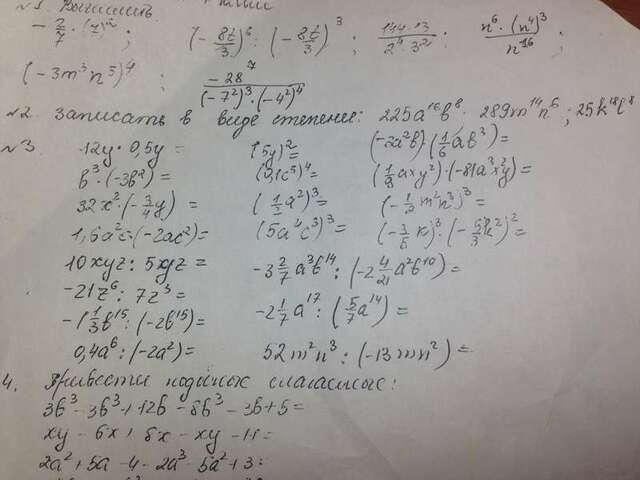 №1. Вычислить
- 2/7 · ; (- 8t/3)⁶ : (- 8t/3)³ ; 144·13 / 2⁴·3² ; n⁶·(n⁴)³ / n¹⁶
(-3m³n⁵)⁴ ; -28⁷ / (-7²)³·(-4²)⁴
№2. Записать в виде степени: 225a¹⁶b⁸ · 289m¹⁴n⁶ ; 25k¹⁸l⁸
№3. 12y · 0,5y = (5y)² = (-2a²b)·(1/6 ab³) =
b³·(-3b²) = (0,1c⁵)⁴ = (1/9 axy²)·(-81a³x²y) =
32x²·(-3/4 y) = (1/2 a²)³ = (-1/2 m²n³)³ =
1,6a²c·(-2ac²) = (5a⁴c³)³ = (-3/5 k)³·(-5/3 k²)² =
10xyz : 5xyz = -3 2/7 a³b¹⁴ : (-2 4/21 a²b¹⁰) =
-21z⁶ : 7z³ = -2 1/7 a¹⁷ : (5/7 a¹⁴) =
-1 1/3 b¹⁵ : (-2b¹⁵) =
0,4a⁶ : (-2a²) = 52m²n³ : (-13mn²) =
4. Привести подобные слагаемые:
3b³ - 3b³ + 12b - 8b³ - 3b + 5 =
xy - 6x + 8x - xy - 11 =
2a² + 5a - 4 - 2a³ - 5a² + 3 =